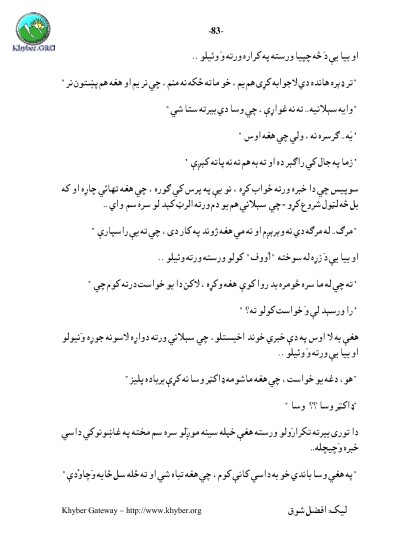 -83-
Khyber.ORG
او بيا يې دَ څه چپيا ورسته په کراره ورته وَوئيلو . .
"تر ډېره هانده دې لاجوابه کړی هم يم ، خو ما ته ځکه نه منم ، چې تر يم او هغه هم پښتون تر "
"وايه سپلانيه.. ته نه غواړې ، چې وسا دې بيرته ستا شي "
"يَه .. ګرسره نه ، ولې چې هغه اوس "
"زما په جال کې راګېر ده او ته به هم ته نه پاته کېږې "
سوپيس چې دا خبره ورته ځواب کړه ، نو يې په پرس کې ګوره ، چې هغه تهائي چاړه او که
بل څه لټول شروع کړو - چې سپلانې هم يو دم ورته الرټ کېد لو سره سم واى ..
"مرګ.. له مرګه دې نه وېرېږم او نه مې هغه ژوند په کار دى ، چې ته يې راسپارې "
او بيا يې دَ زړه له سوخته "أووف" کولو ورسته ورته وئيلو ..
"ته چې له ما سره څومره بد روا کوې هغه وکړه ، لاکن دا يو خواست درته کوم چې "
"را ورسېد لې وَ خواست کولو ته؟ "
هغې به لا اوس په دې خبرې خوند اخيستلو ، چې سپلانې ورته دواړه لاسونه جوړه وَنيولو
او بيا يې ورته وَوئيلو ..
"هو ، دغه يو خواست ، چې هغه ماشومه ډاکټر وسا نه کړې برباده پليز "
"ډاکټر وسا ؟؟ وسا "
دا تورى بيرته تکرارَولو ورسته هغې خپله سينه موړلو سره سم مخته په غاښونو کې داسې
خبره وَچيچله..
"په هغې وسا باندې خو به داسې کانې کوم ، چې هغه تباه شي او ته څله سل ځايه وَچاودې"
Khyber Gateway – http://www.khyber.org
ليک: افضل شوق